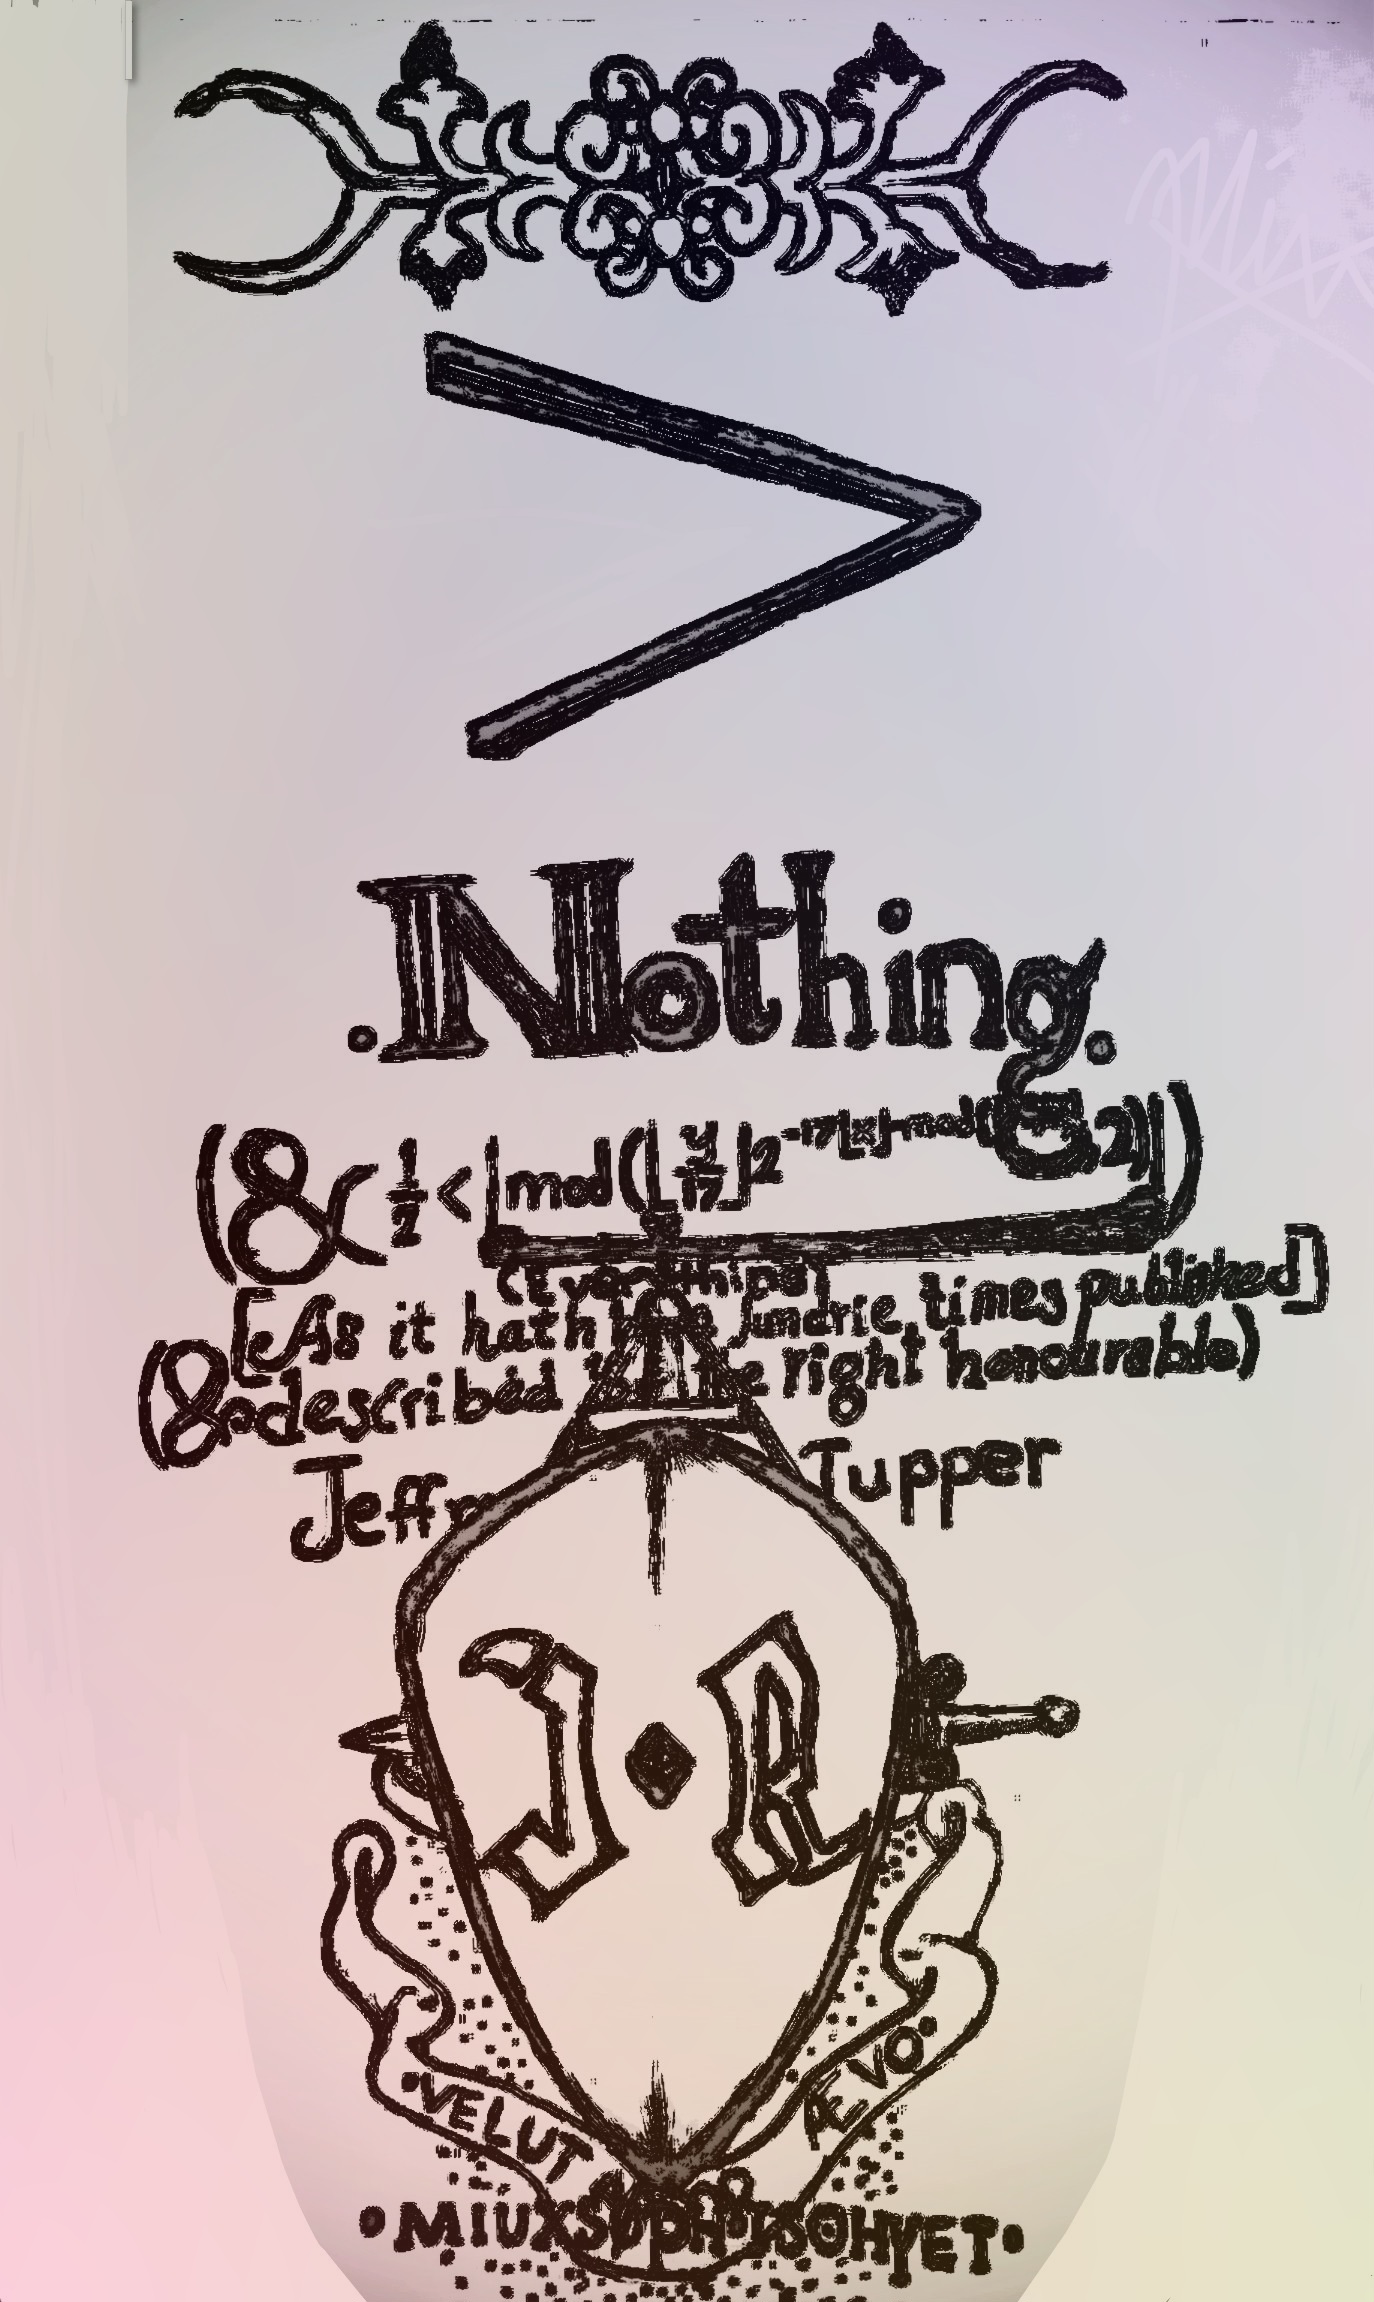 >
.Nothing.
(& 1/2 < |mod(⌊y/17⌋2^-17⌊x⌋-mod( 2)|)
(Everything)
[As it hath been sundrie times published]
(& described the right honourable)
Jeff Tupper
J R
VELUT ÆVO